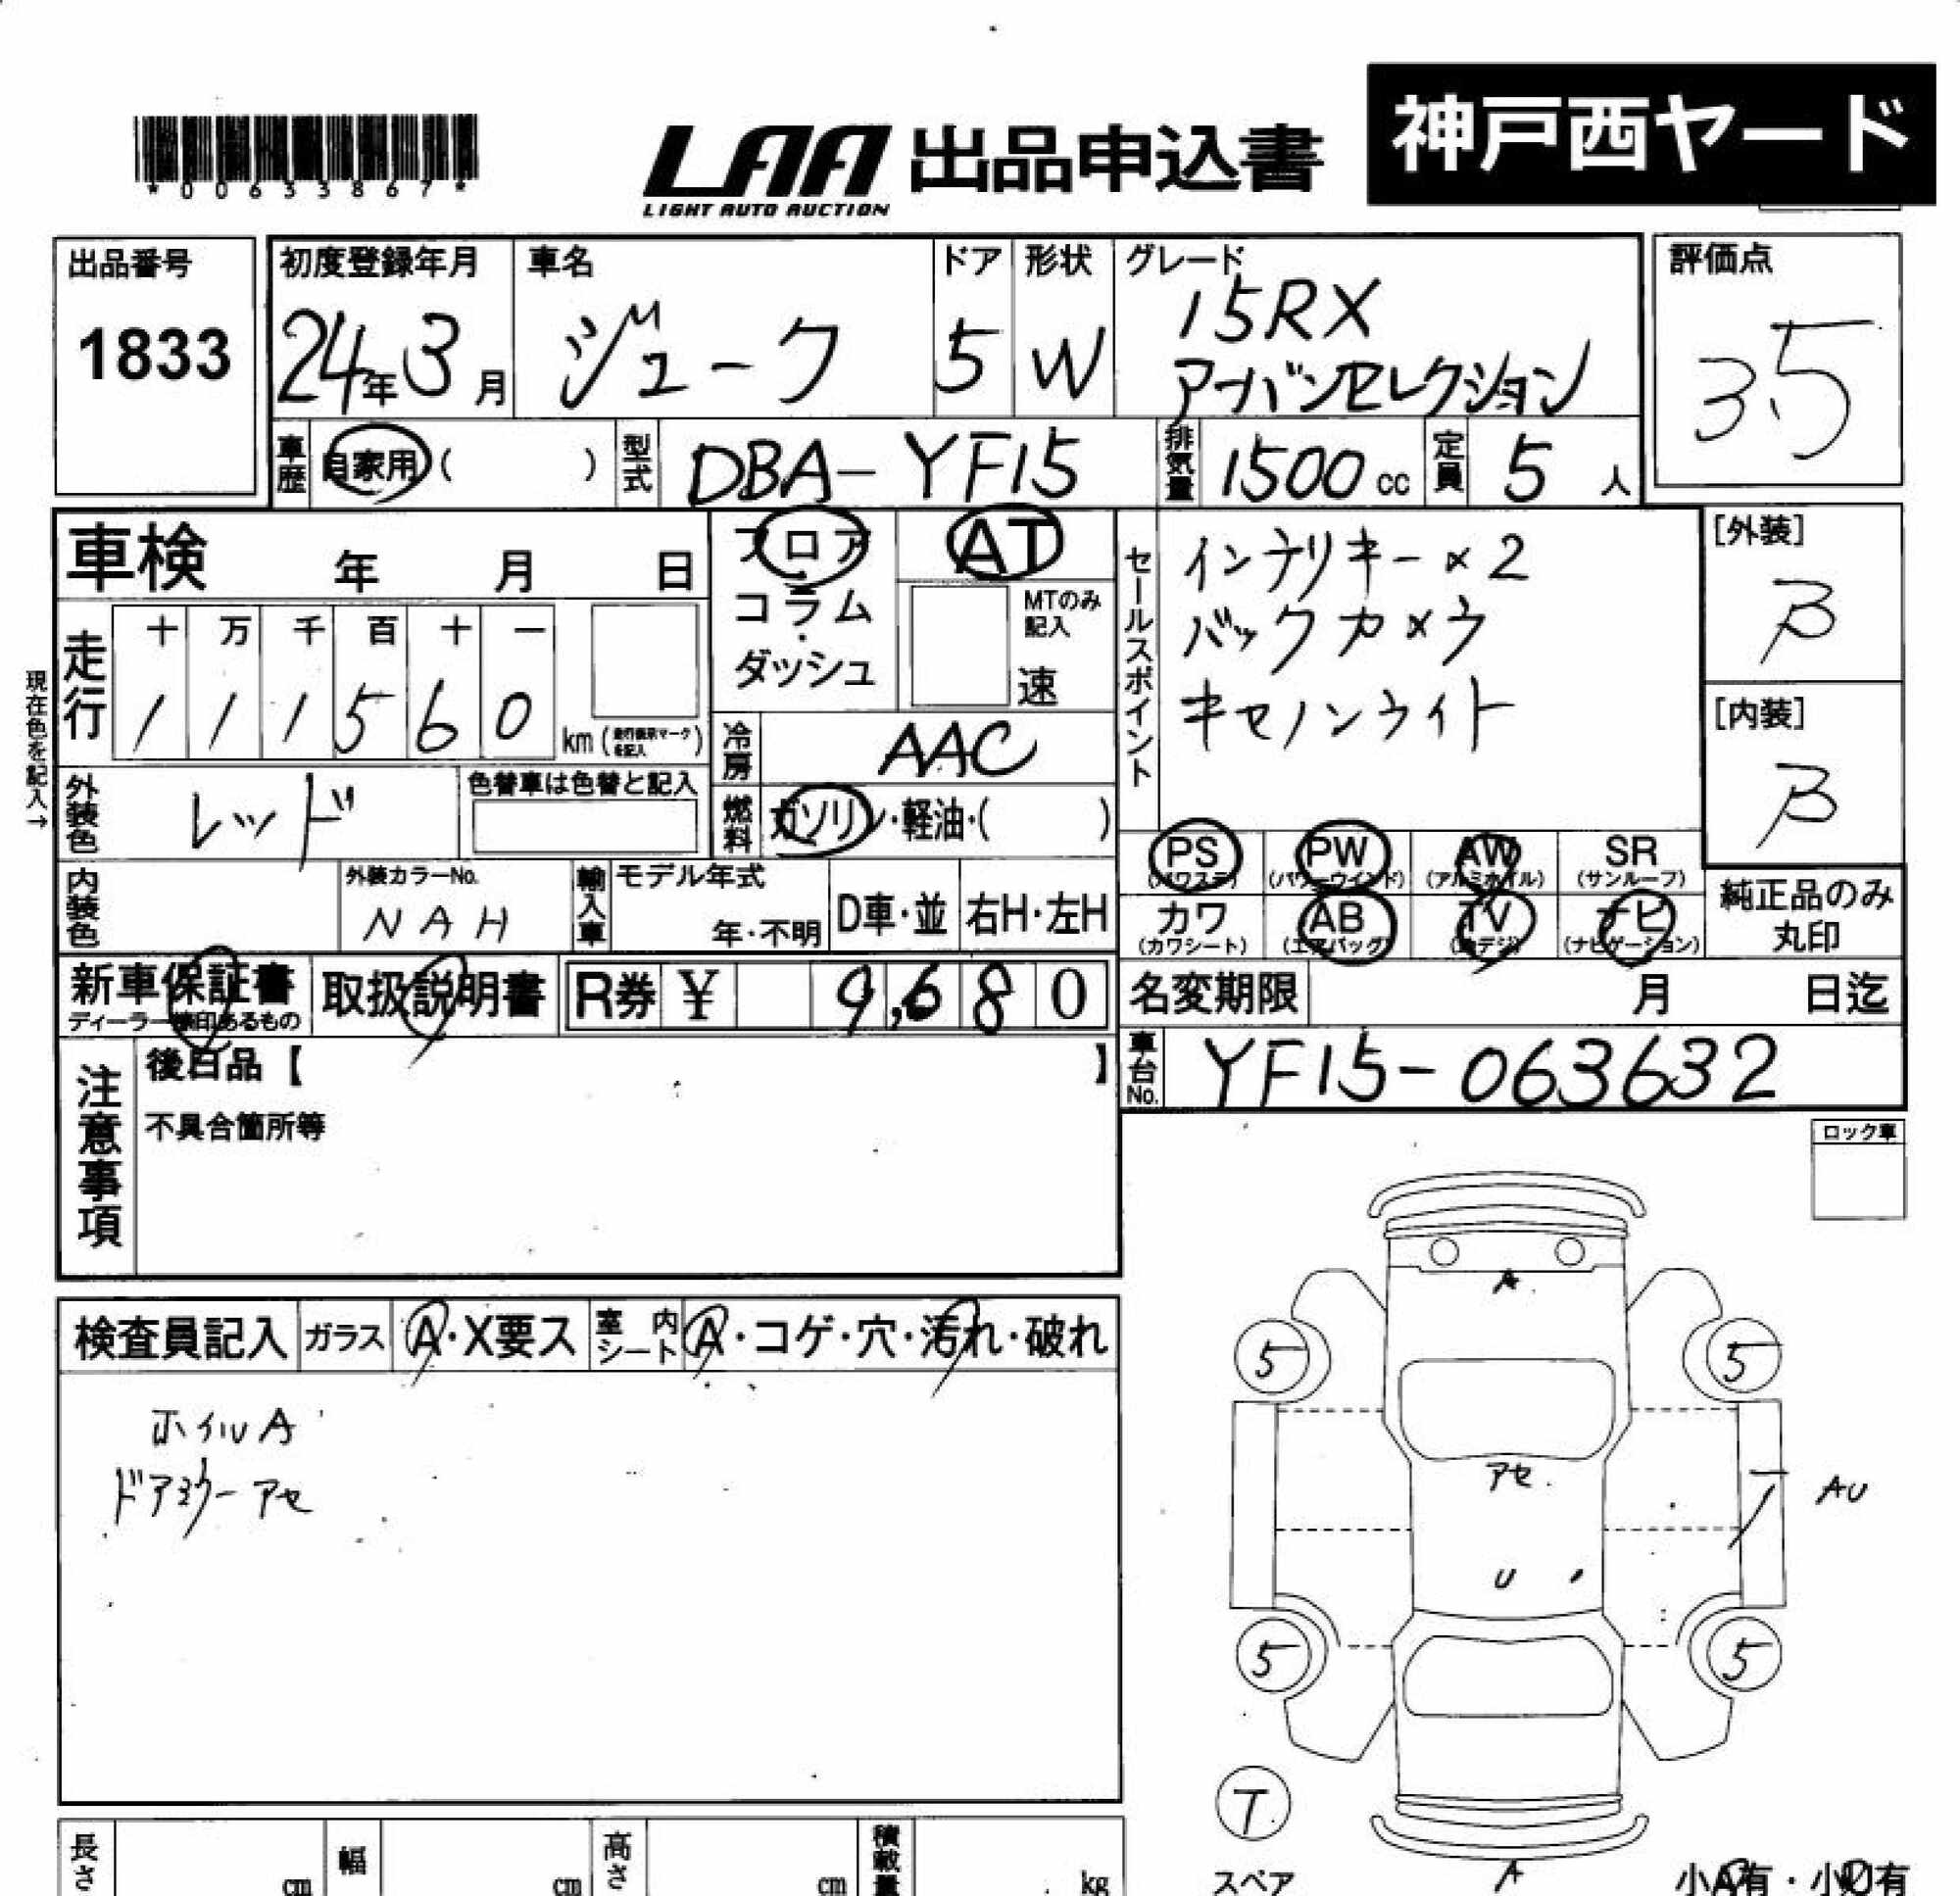 神戸西ヤード
*00633867*
LAA 出品申込書
LIGHT AUTO AUCTION
出品番号
1833
初度登録年月
24年3月
車名
ジューク
ドア
5
形状
W
グレード
15RX
アーバンセレクション
評価点
3.5
車歴 自家用 ( )
型式 DBA-YF15
排気量 1500 cc
定員 5 人
車検 年 月 日
フロア
コラム
・
ダッシュ
AT
MTのみ
記入
速
セールスポイント
インテリキー×2
バックカメラ
キセノンライト
[外装]
B
[内装]
B
現在色を記入→
走行
十 万 千 百 十 一
1 1 1 5 6 0
km (走行表示マークを記入)
冷房 AAC
外装色 レッド
色替車は色替と記入
燃料 ガソリン・軽油・( )
内装色
外装カラーNo.
NAH
輸入車
モデル年式
年・不明
D車・並
右H・左H
PS (パワステ)
PW (パワーウインド)
AW (アルミホイル)
SR (サンルーフ)
カワ (カワシート)
AB (エアバッグ)
TV (地デジ)
ナビ (ナビゲーション)
純正品のみ
丸印
新車保証書
ディーラー捺印あるもの
取扱説明書
R券 ¥ 9,680
名変期限 月 日迄
車台No. YF15-063632
注意事項
後日品【 】
不具合箇所等
ロック車
検査員記入
ガラス A・X要ス
室内シート A・コゲ・穴・汚れ・破れ
ホイルA
ドアミラーアセ
A
5 5
アセ
AU
U
5 5
T
スペア
A
小A有・小U有
長さ cm
幅 cm
高さ cm
積載量 kg